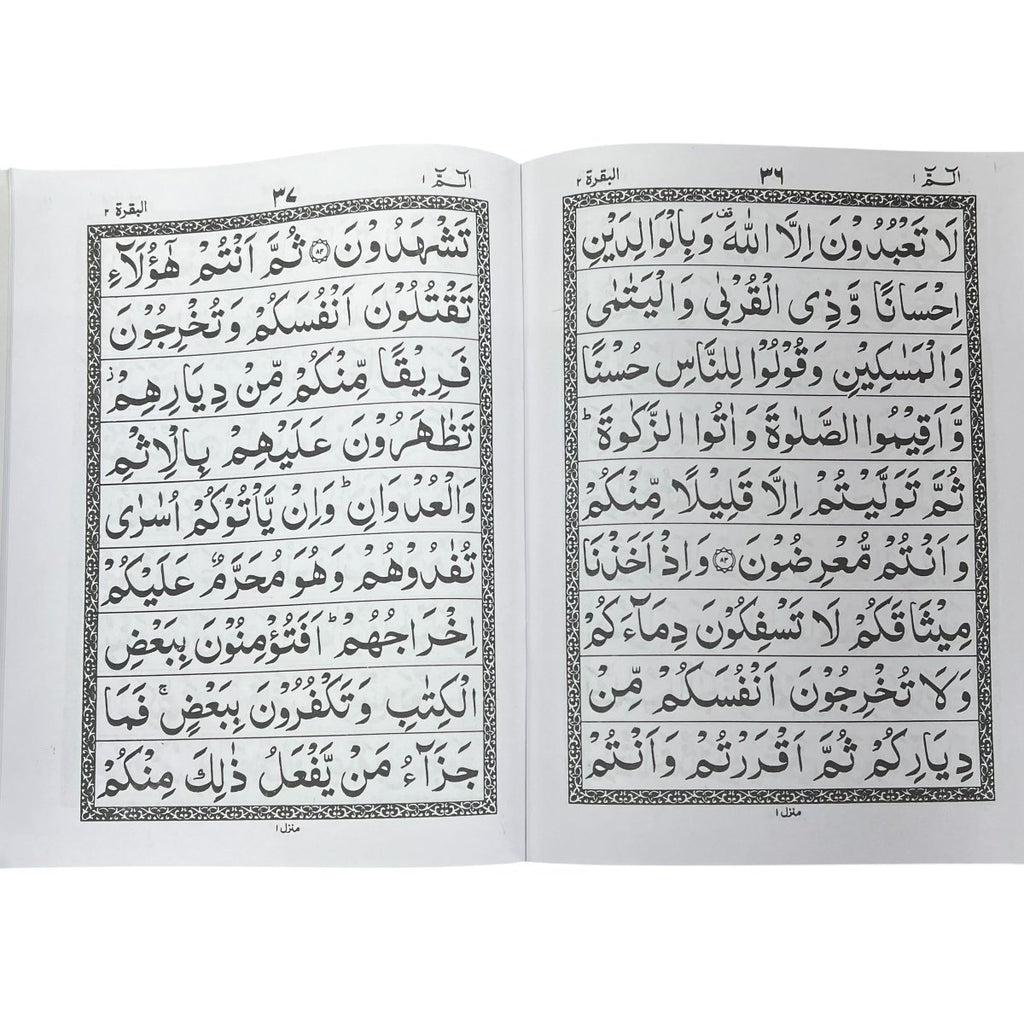 الٓـمّٓ ١
٣٦
البقرة ٢
لَا تَعْبُدُوْنَ اِلَّا اللّٰهَ ۫ وَبِالْوَالِدَيْنِ
اِحْسَانًا وَّذِی الْقُرْبٰی وَالْيَتٰمٰی
وَالْمَسٰكِيْنِ وَقُوْلُوْا لِلنَّاسِ حُسْنًا
وَّاَقِيْمُوا الصَّلٰوةَ وَاٰتُوا الزَّكٰوةَ ؕ
ثُمَّ تَوَلَّيْتُمْ اِلَّا قَلِيْلًا مِّنْكُمْ
وَاَنْتُمْ مُّعْرِضُوْنَ ۝٨٣ وَاِذْ اَخَذْنَا
مِيْثَاقَكُمْ لَا تَسْفِكُوْنَ دِمَآءَكُمْ
وَلَا تُخْرِجُوْنَ اَنْفُسَكُمْ مِّنْ
دِيَارِكُمْ ثُمَّ اَقْرَرْتُمْ وَاَنْتُمْ
منزل ١
الٓـمّٓ ١
٣٧
البقرة ٢
تَشْهَدُوْنَ ۝٨٤ ثُمَّ اَنْتُمْ هٰٓؤُلَآءِ
تَقْتُلُوْنَ اَنْفُسَكُمْ وَتُخْرِجُوْنَ
فَرِيْقًا مِّنْكُمْ مِّنْ دِيَارِهِمْ ؗ
تَظٰهَرُوْنَ عَلَيْهِمْ بِالْاِثْمِ
وَالْعُدْوَانِ ؕ وَاِنْ يَّاْتُوْكُمْ اُسٰرٰی
تُفٰدُوْهُمْ وَهُوَ مُحَرَّمٌ عَلَيْكُمْ
اِخْرَاجُهُمْ ؕ اَفَتُؤْمِنُوْنَ بِبَعْضِ
الْكِتٰبِ وَتَكْفُرُوْنَ بِبَعْضٍ ۚ فَمَا
جَزَآءُ مَنْ يَّفْعَلُ ذٰلِكَ مِنْكُمْ
منزل ١